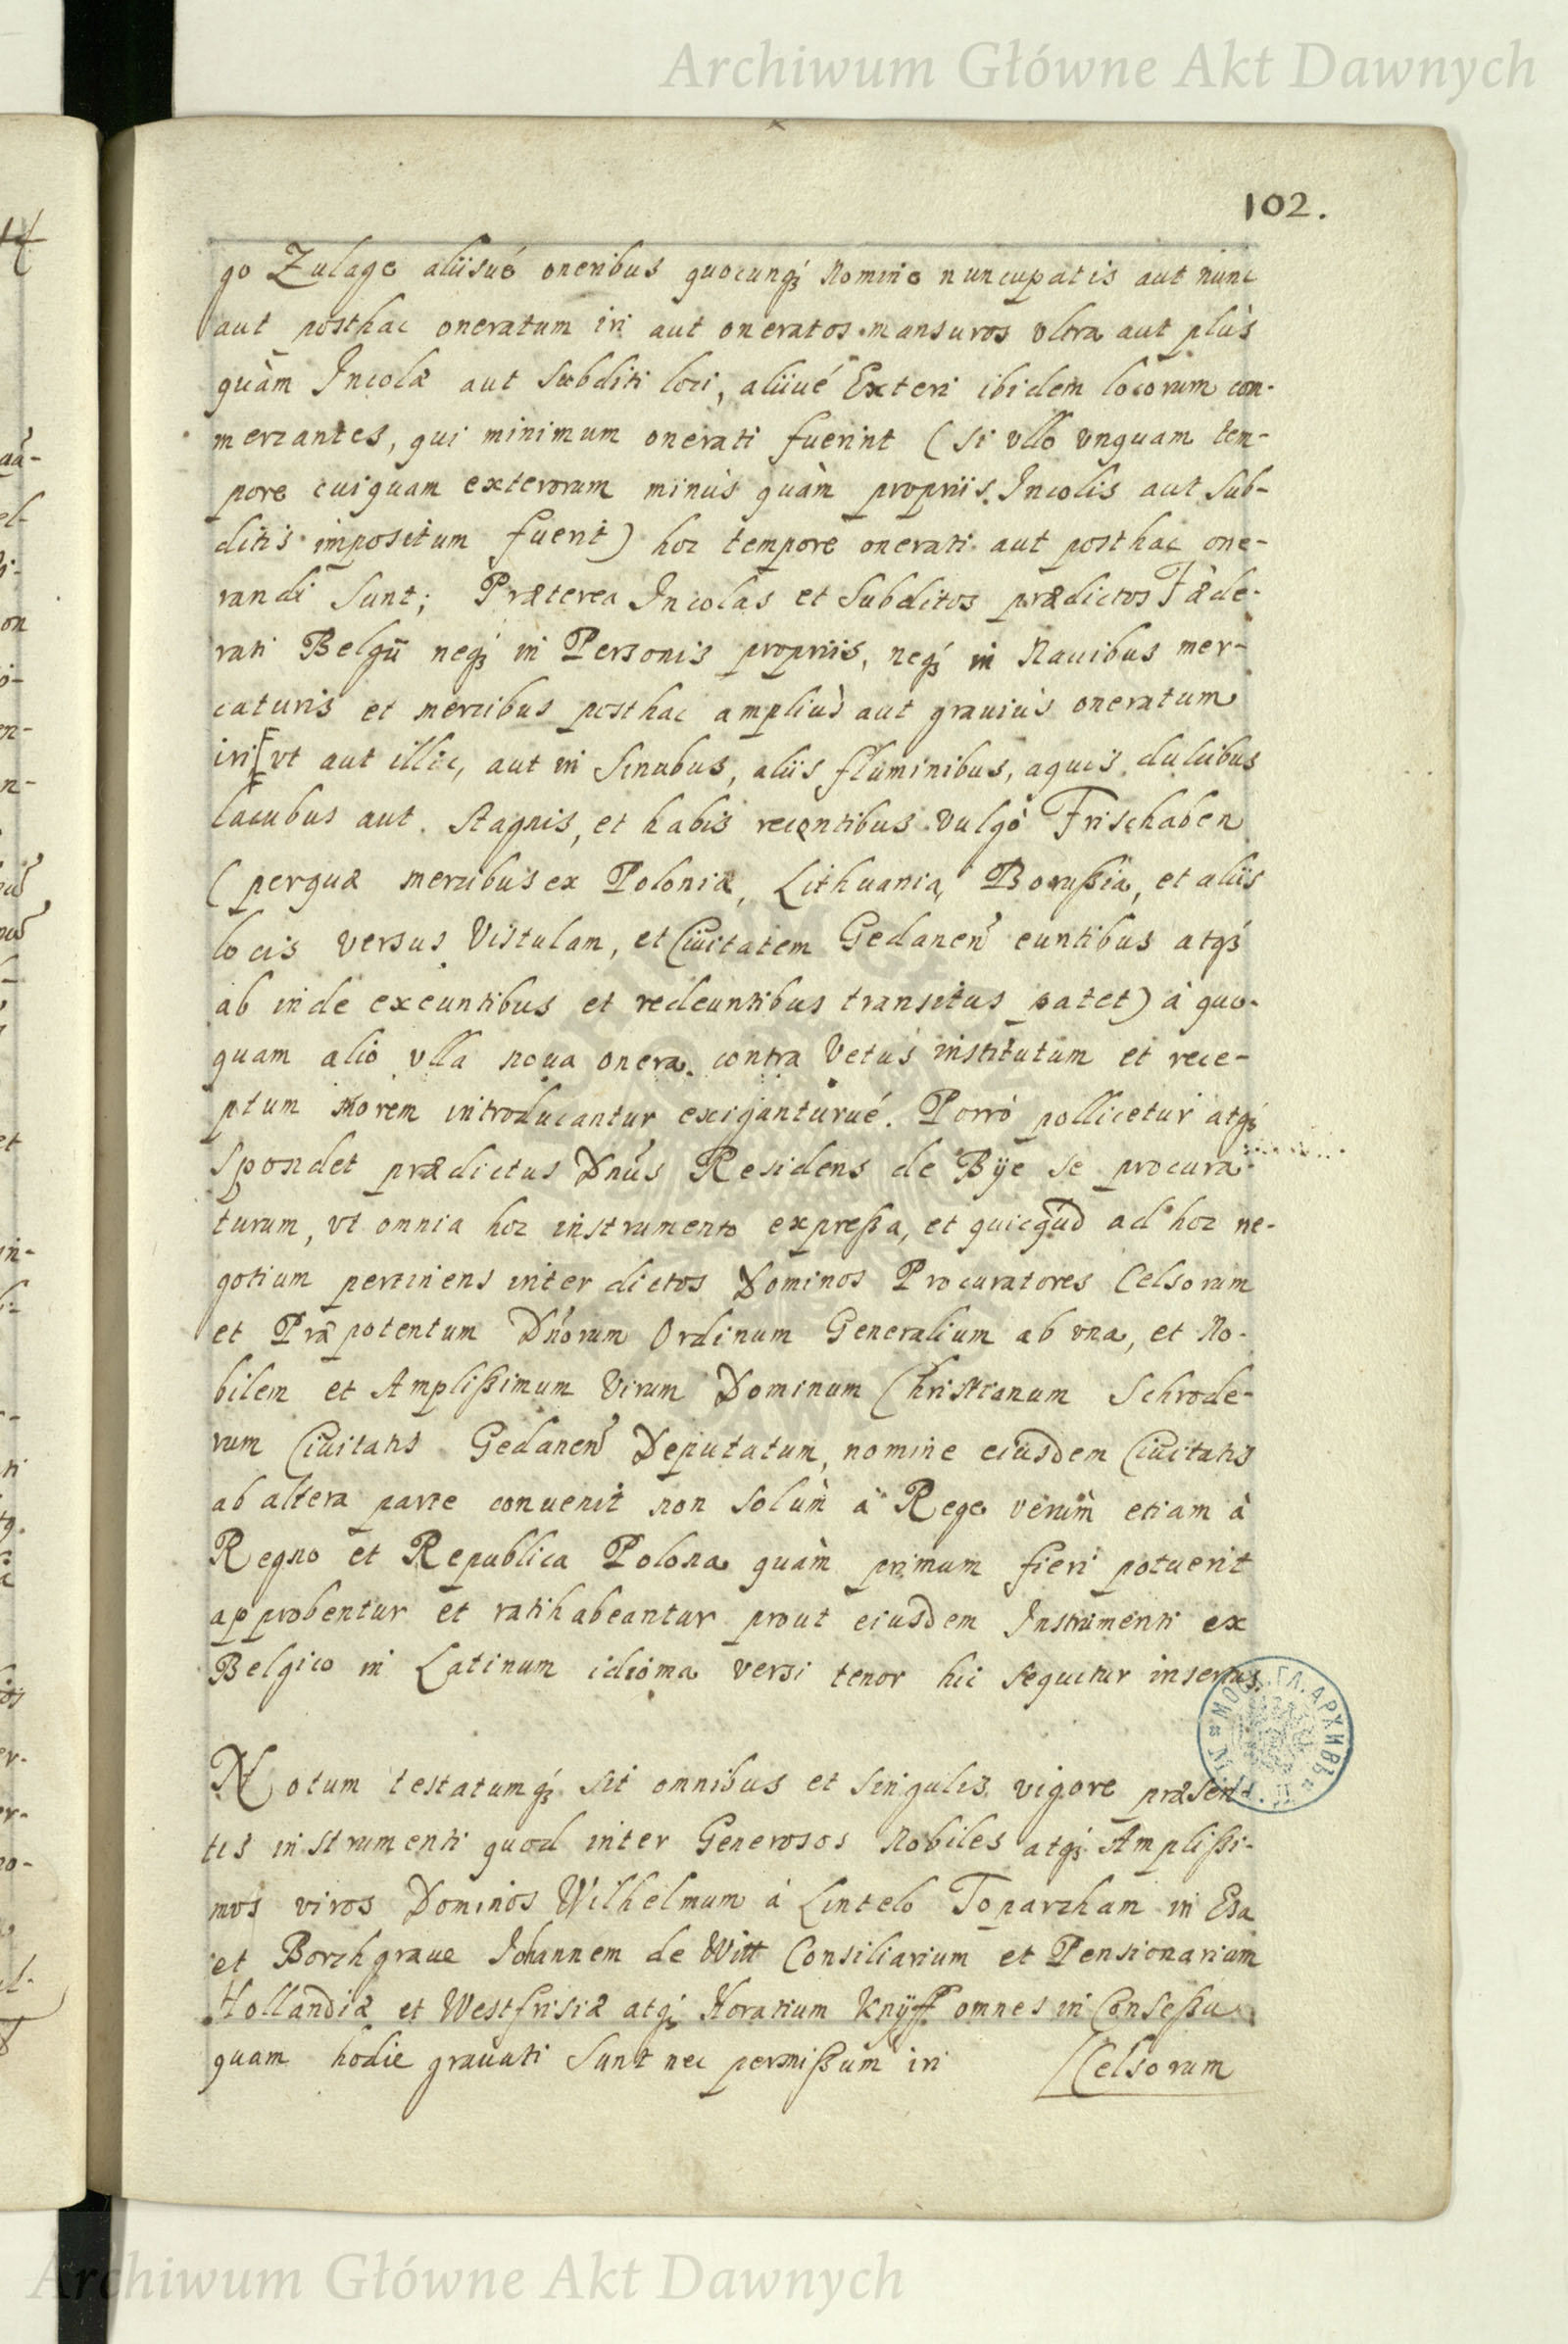 Archiwum Główne Akt Dawnych
102.
go Zulage aliisué oneribus quocunqʒ Nomine nuncupatis aut nunc
aut posthac oneratum iri aut oneratos mansuros vltra aut plùs
quàm Incolæ aut Subditi loci, aliiué Exteri ibidem locorum com-
merzantes, qui minimum onerati fuerint (si vllo vnquam tem-
pore cuiquam exterorum minùs quàm propriis Incolis aut Sub-
ditis impositum fuerit) hoc tempore onerati aut posthac one-
randi Sunt; Præterea Incolas et Subditos prædictos Fæde-
rati Belgii neqʒ in Personis propriis, neqʒ in Nauibus mer-
caturis et mercibus posthac ampliùs aut grauiùs oneratum
iri vt aut illic, aut in Sinubus, aliis fluminibus, aquis dulcibus
lacubus aut Stagnis, et habis recentibus vulgò Frischaben
(perquæ mercibus ex Poloniæ, Lithuania, Borußia, et aliis
locis versus Vistulam, et Ciuitatem Gedanen̄ euntibus atqʒ
ab inde exeuntibus et redeuntibus transitus patet) à quo-
quam alio vlla noua onera contra Vetus institutum et rece-
ptum morem introducantur exigantur ué. Porrò pollicetur atqʒ
Spondet prædictus Dn̄us Residens de Bÿe se procura-
turum, vt omnia hoc instrumento expreßa, et quicqud ad hoc ne-
gotium pertinens inter dictos Dominos Procuratores Celsorum
et Præpotentum Dn̄orum Ordinum Generalium ab vna, et No-
bilem et Amplißimum Virum Dominum Christianum Schrode-
rum Ciuitatis Gedanen̄ Deputatum, nomine eiusdem Ciuitatis
ab altera parte conuenit non Solùm à Rege verùm etiam à
Regno et Republica Polona quàm primum fieri potuerit
approbentur et ratihabeantur prout eiusdem Instrumenti ex
Belgico in Latinum idioma versi tenor hic Sequitur insertus.
Notum testatumqʒ sit omnibus et Singulis vigore præsen-
tis instrumenti quod inter Generosos Nobiles atqʒ Amplißi-
mos viros Dominos Wilhelmum à Lintelo Toparcham in Esa
et Borchgraue Johannem de Witt Consiliarium et Pensionarium
Hollandiæ et Westfrisiæ atqʒ Horatium Knÿff omnes in Conseßu
quam hodie grauati Sunt nec permißum iri Celsorum
Archiwum Główne Akt Dawnych